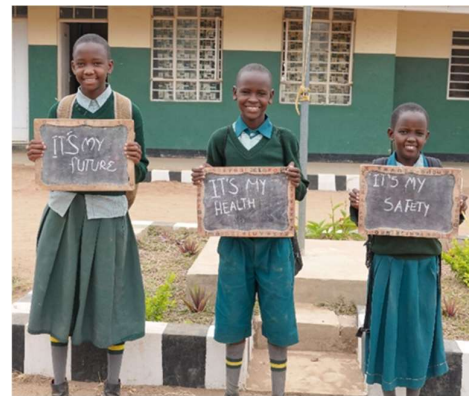 IT'S MY
FUTURE
IT'S MY
HEALTH
IT'S MY
SAFETY